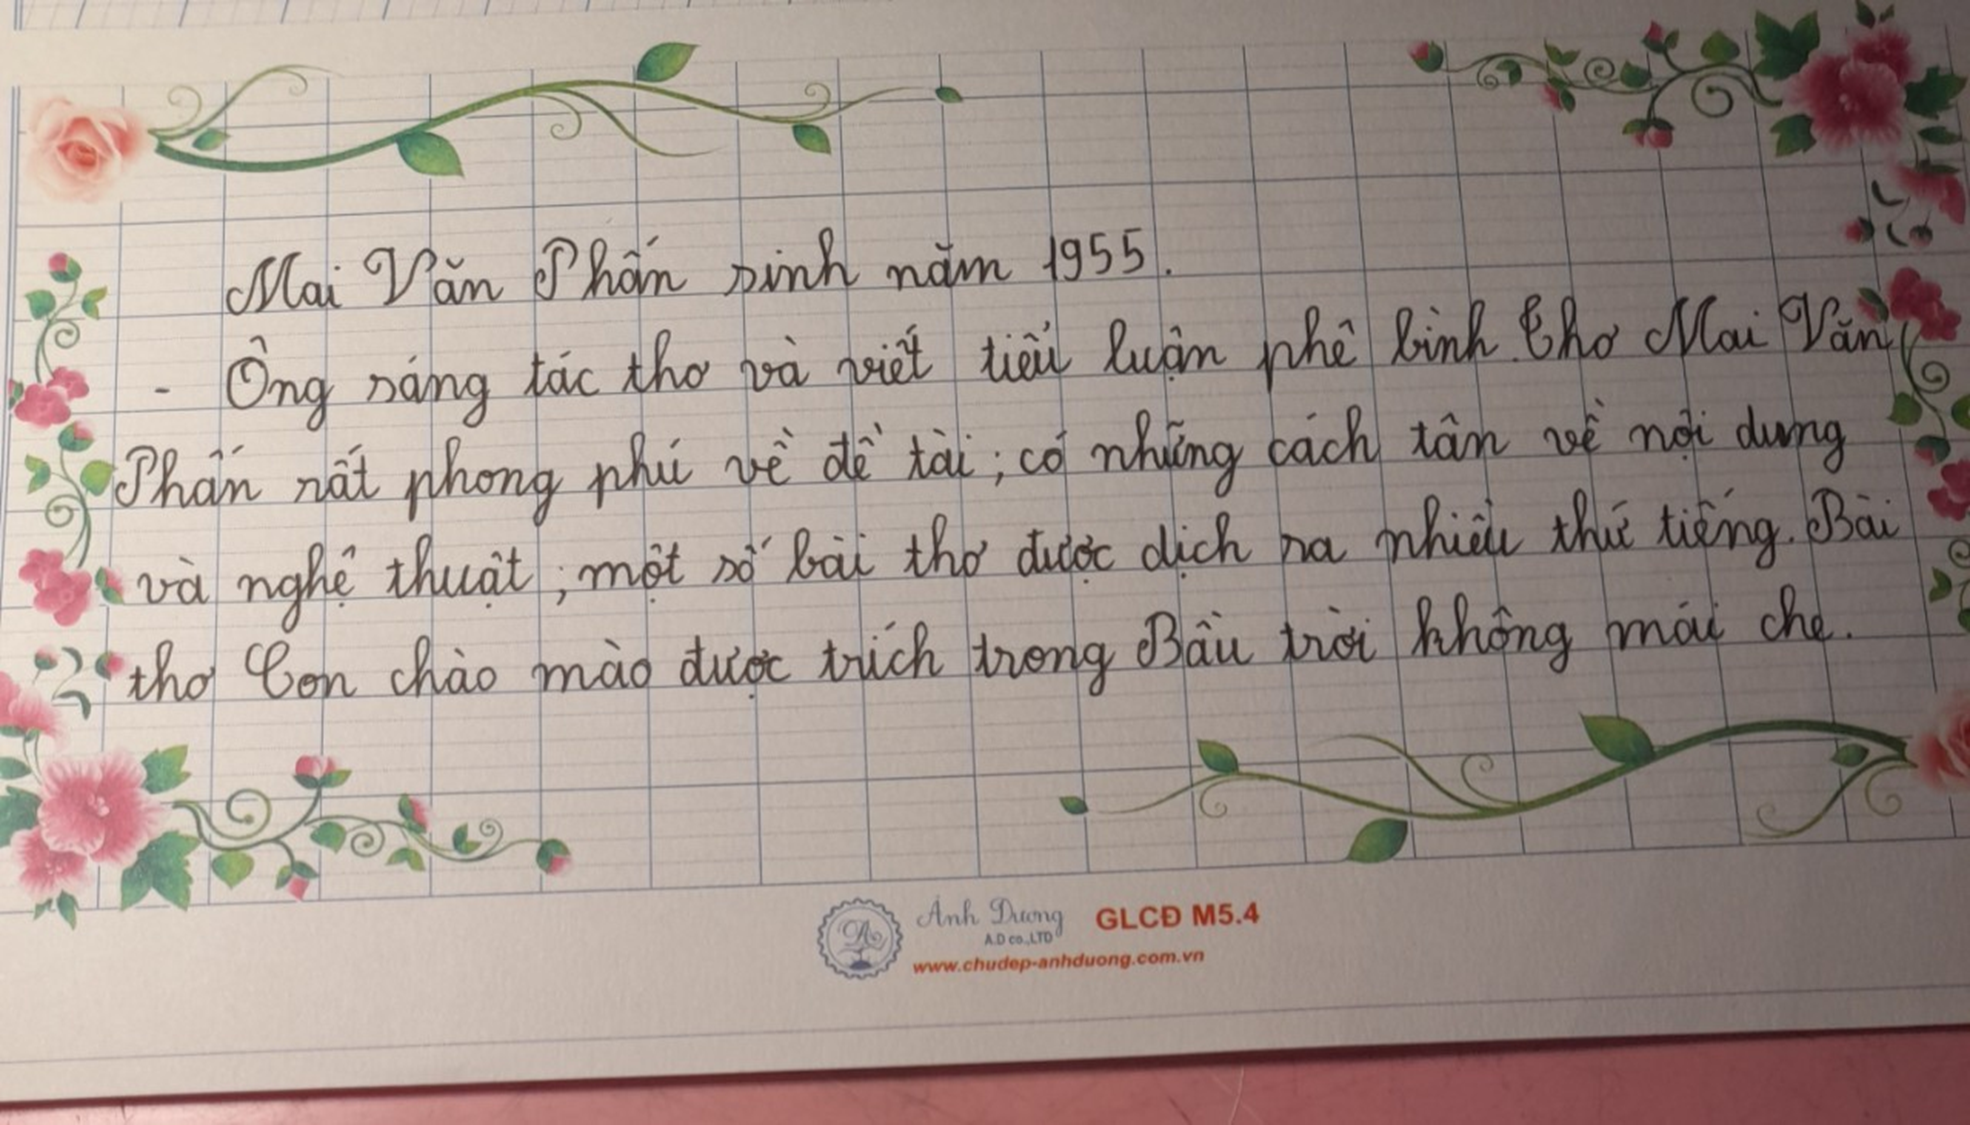 Mai Văn Phấn sinh năm 1955.
- Ông sáng tác thơ và viết tiểu luận phê bình. Thơ Mai Văn
Phấn rất phong phú về đề tài; có những cách tân về nội dung
và nghệ thuật; một số bài thơ được dịch ra nhiều thứ tiếng. Bài
thơ Con chào mào được trích trong Bầu trời không mái che.
Ánh Dương GLCĐ M5.4
A.D co.,LTD
www.chudep-anhduong.com.vn